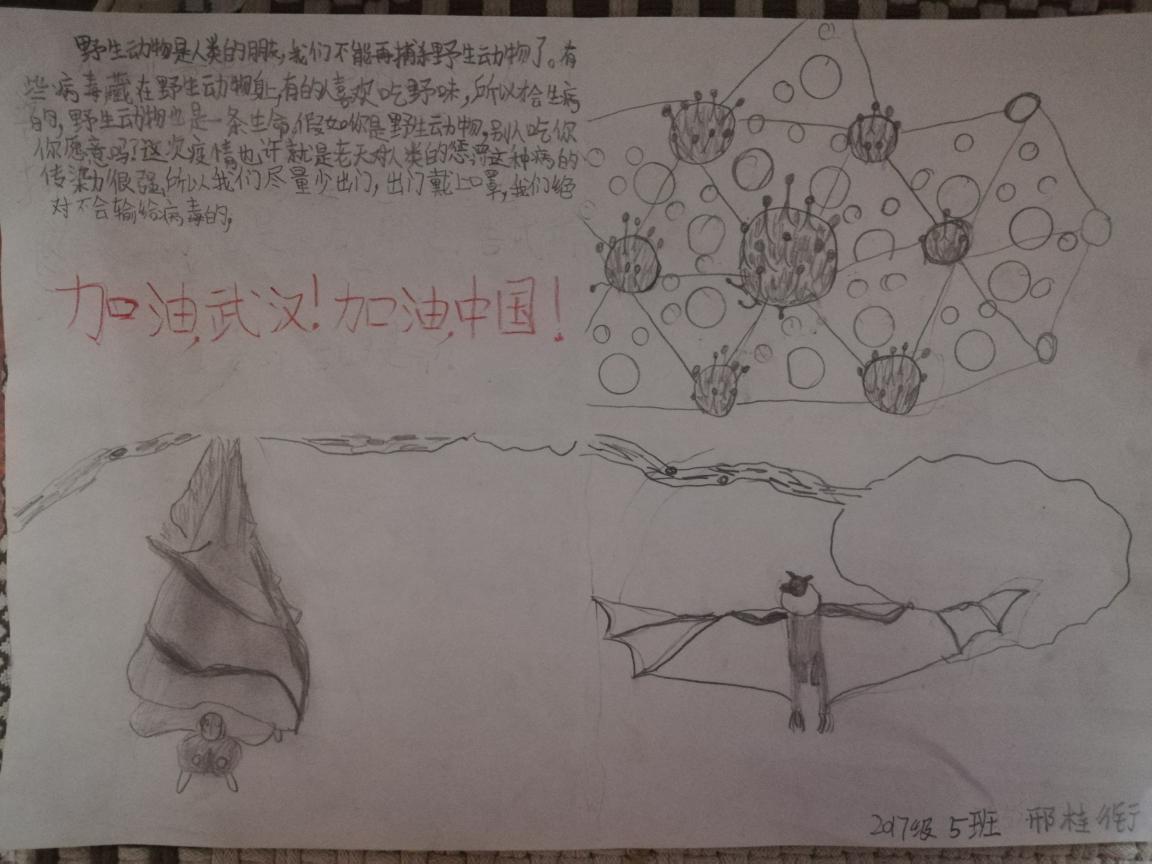 野生动物是人类的朋友,我们不能再捕杀野生动物了。有
些病毒藏在野生动物身上,有的人喜欢吃野味,所以才会生病
的,野生动物也是一条生命,假如你是野生动物,别人吃你
你愿意吗?这次疫情也许就是老天对人类的惩罚这种病的
传染力很强,所以我们尽量少出门,出门戴上口罩,我们绝
对不会输给病毒的,
加油,武汉!加油,中国!
2017级 5班 邢桂衔